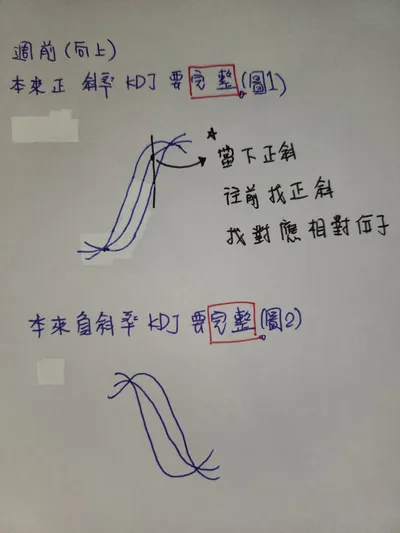 週前(向上)
本來正斜率KDJ要完整(圖1)
當下正斜
往前找正斜
找對應相對位子
本來負斜率KDJ要完整(圖2)